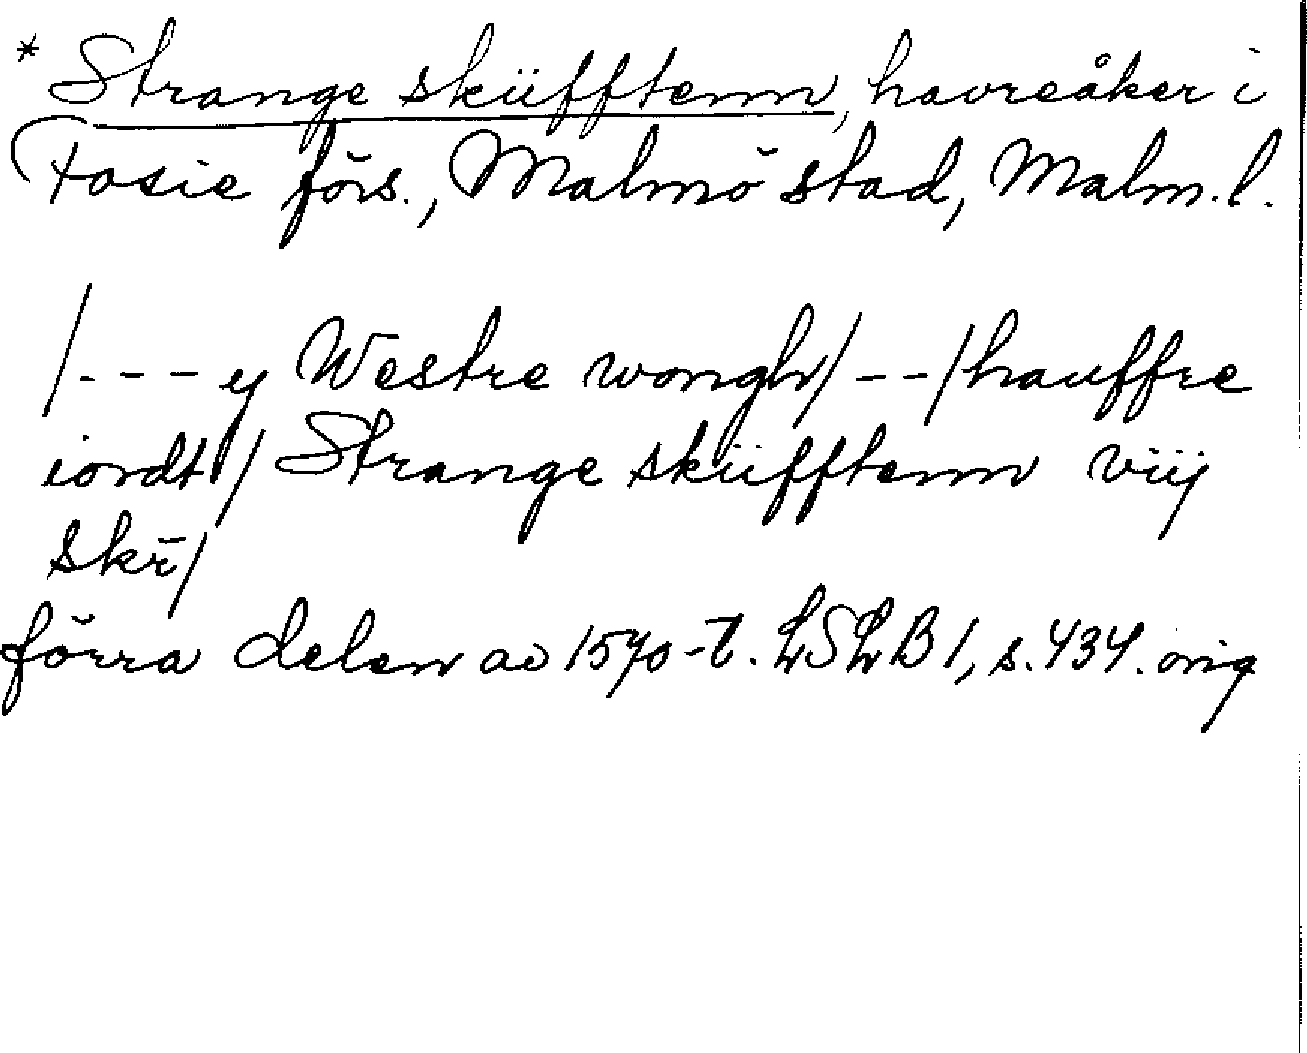 * Strange sküfftenn, havreåker i
Fosie förs., Malmö stad, Malm. l.
/--- y Westre wongh/--/hauffre
iordt/ Strange sküfftenn viij
skr̄/
förra delen av 1570-t. LSLB 1, s. 434. orig